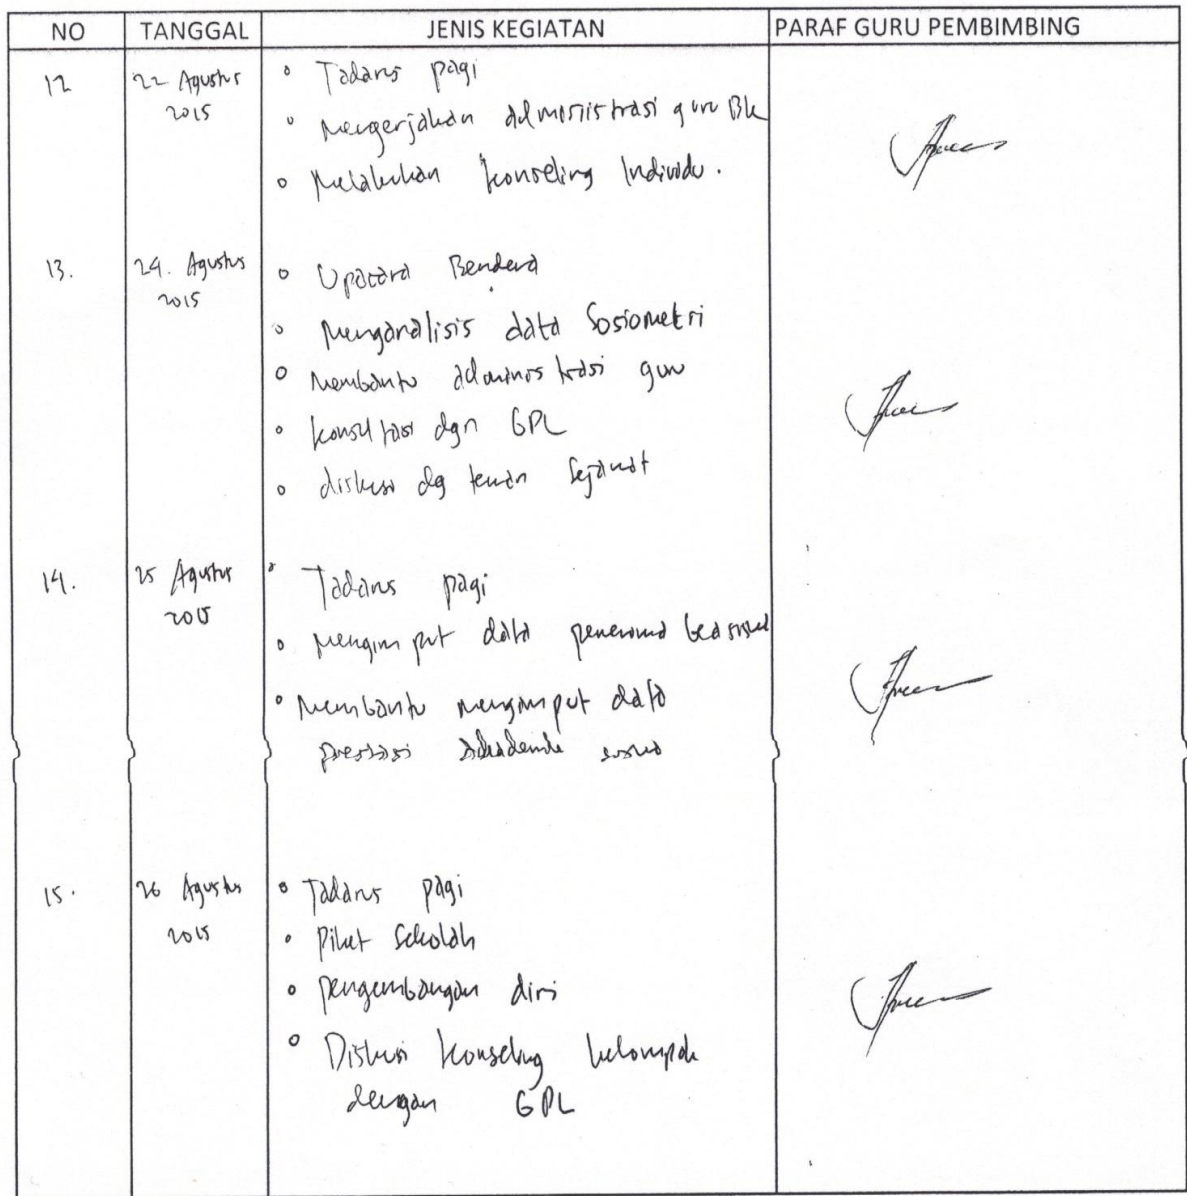 NO TANGGAL JENIS KEGIATAN PARAF GURU PEMBIMBING
12 22 Agustus 2015
o Tadarus pagi
o Mengerjakan administrasi guru BK
o Melakukan konseling Individu.
13. 24. Agustus 2015
o Upacara Bendera
o Menganalisis data Sosiometri
o Membantu administrasi guru
o konsultasi dgn GPL
o diskusi dg teman sejawat
14. 25 Agustus 2015
o Tadarus pagi
o mengimput data penerima beasiswa
o Membantu mengimput data
prestasi akademik siswa
15. 26 Agustus 2015
o Tadarus pagi
o Piket Sekolah
o pengembangan diri
o Diskusi konseling kelompok
dengan GPL